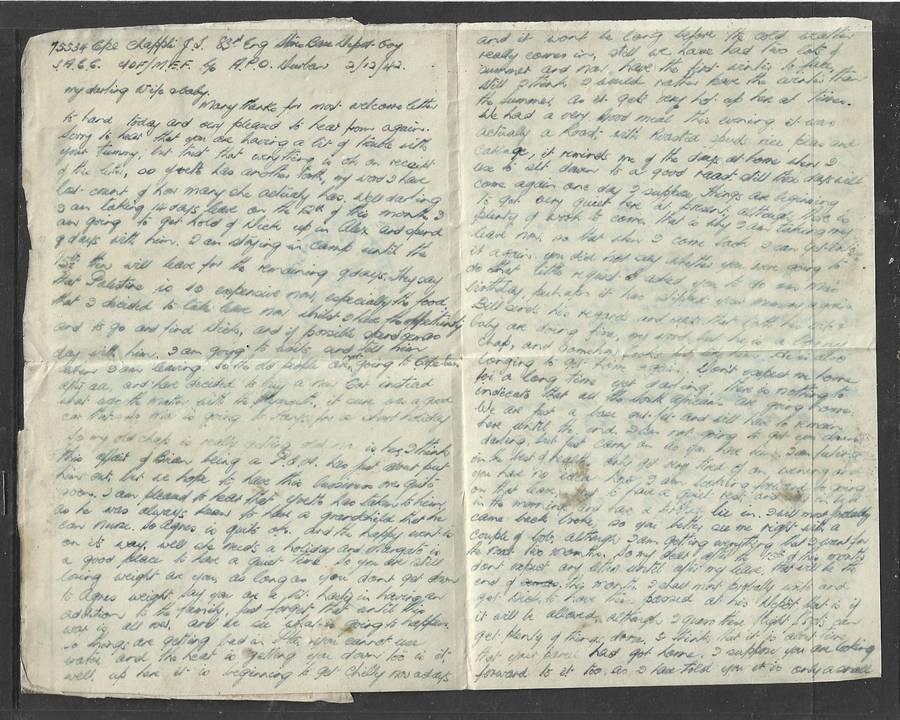 75534 Cpe Chappli J.S. 83rd Eng Store Base Depot Coy
S.A.E.C. UDF/M.E.F. c/o A.P.O. Durban 2/12/42.
my darling Wife & baby
Many thanks for most welcome letter
to hand today and very pleased to hear from again.
Sorry to hear that you are having a bit of trouble with
your tummy, but trust that everything is ok on receipt
of the letter, so has another tooth, my word I have
lost count of how many she actually has. Well darling
I am taking 14 days leave on the of this month, I
am going to get hold of Dick up in Alex and spend
9 days with him. I am staying in camp until the
15th then will leave for the remaining 9 days. They say
that Palestine is so expensive now, especially the food
that I decided to take leave now whilst I have the opportunity
and to go and find Dick, and if possible spend
day with him. I am going to write and tell him
when I am leaving. So the old people going to Cape Town
after all, and have decided to buy a new instead
what was the matter with the Plymouth, it sure was a good
car is going to for a short holiday
So my old chap is really getting old now is he, I think
this affair of Brian being a P.O.W. has just about put
him out, but we hope to have this business over quite
soon. I am pleased to hear that has taken to him,
as he was always keen to have a grandchild that he
can nurse. So Agnes is quite ok. and the happy event is
on its way, well she needs a holiday and is
a good place to have a quiet time. So you are still
losing weight are you, as long as you dont get down
to Agnes weight, say you are a bit hasty in having an
addition to the family, just forget that until this
war is all over, and we see what is going to happen
so things are getting bad in you cannot use
water and the heat is getting you down too is it,
well, up here it is beginning to get chilly now adays
and it wont be long before the cold weather
really comes in, still we have had two lots of
summer and now have the first winter to face
Still I think I would rather have the winter than
the summer, as it gets very hot up here at times.
We had a very good meal this evening it was
actually a Roast with Roasted spuds rice peas and
cabbage, it reminds me of the days at home when I
use to sit down to a good roast still those days will
come again one day I suppose, things are beginning
to get very quiet here at present, although there is
plenty of work to come that is why I am taking my
leave now, so that when I come back I can get into
it again. you did not say whether you were going to
do that little request I asked you to do
birthday, it has slipped your memory again
Bill sends his regards and says that both his wife &
baby are doing fine, my word but he is a
chap, and
longing to get home again. Dont expect me home
for a long time yet darling, there is nothing to
indicate that all the South Africans are going home.
We are just a base out-fit and will have to remain
here until the end. I am not going to get you down
darling, but just carry on as you have been. I am feeling
in the best of health, only get very tired of an evening and
you have no idea how I am looking forward to going
on that leave, just to have a quiet rest and in bed
in the morning and have a lie in. I will most probably
come back broke, so you better see me right with a
couple of bob, although I am getting everything that I want for
the next two months. So my dear after the 15th of this month
dont expect any letters until after my leave, that will be the
end of this month. I shall most probably write and
get Dick to have them passed at his Depot that is if
it will be allowed, although I guess these Flight Loots can
get plenty of things done, I think that it is about time
that your parcel had got home. I suppose you are looking
forward to it too, as I have told you it is only a small